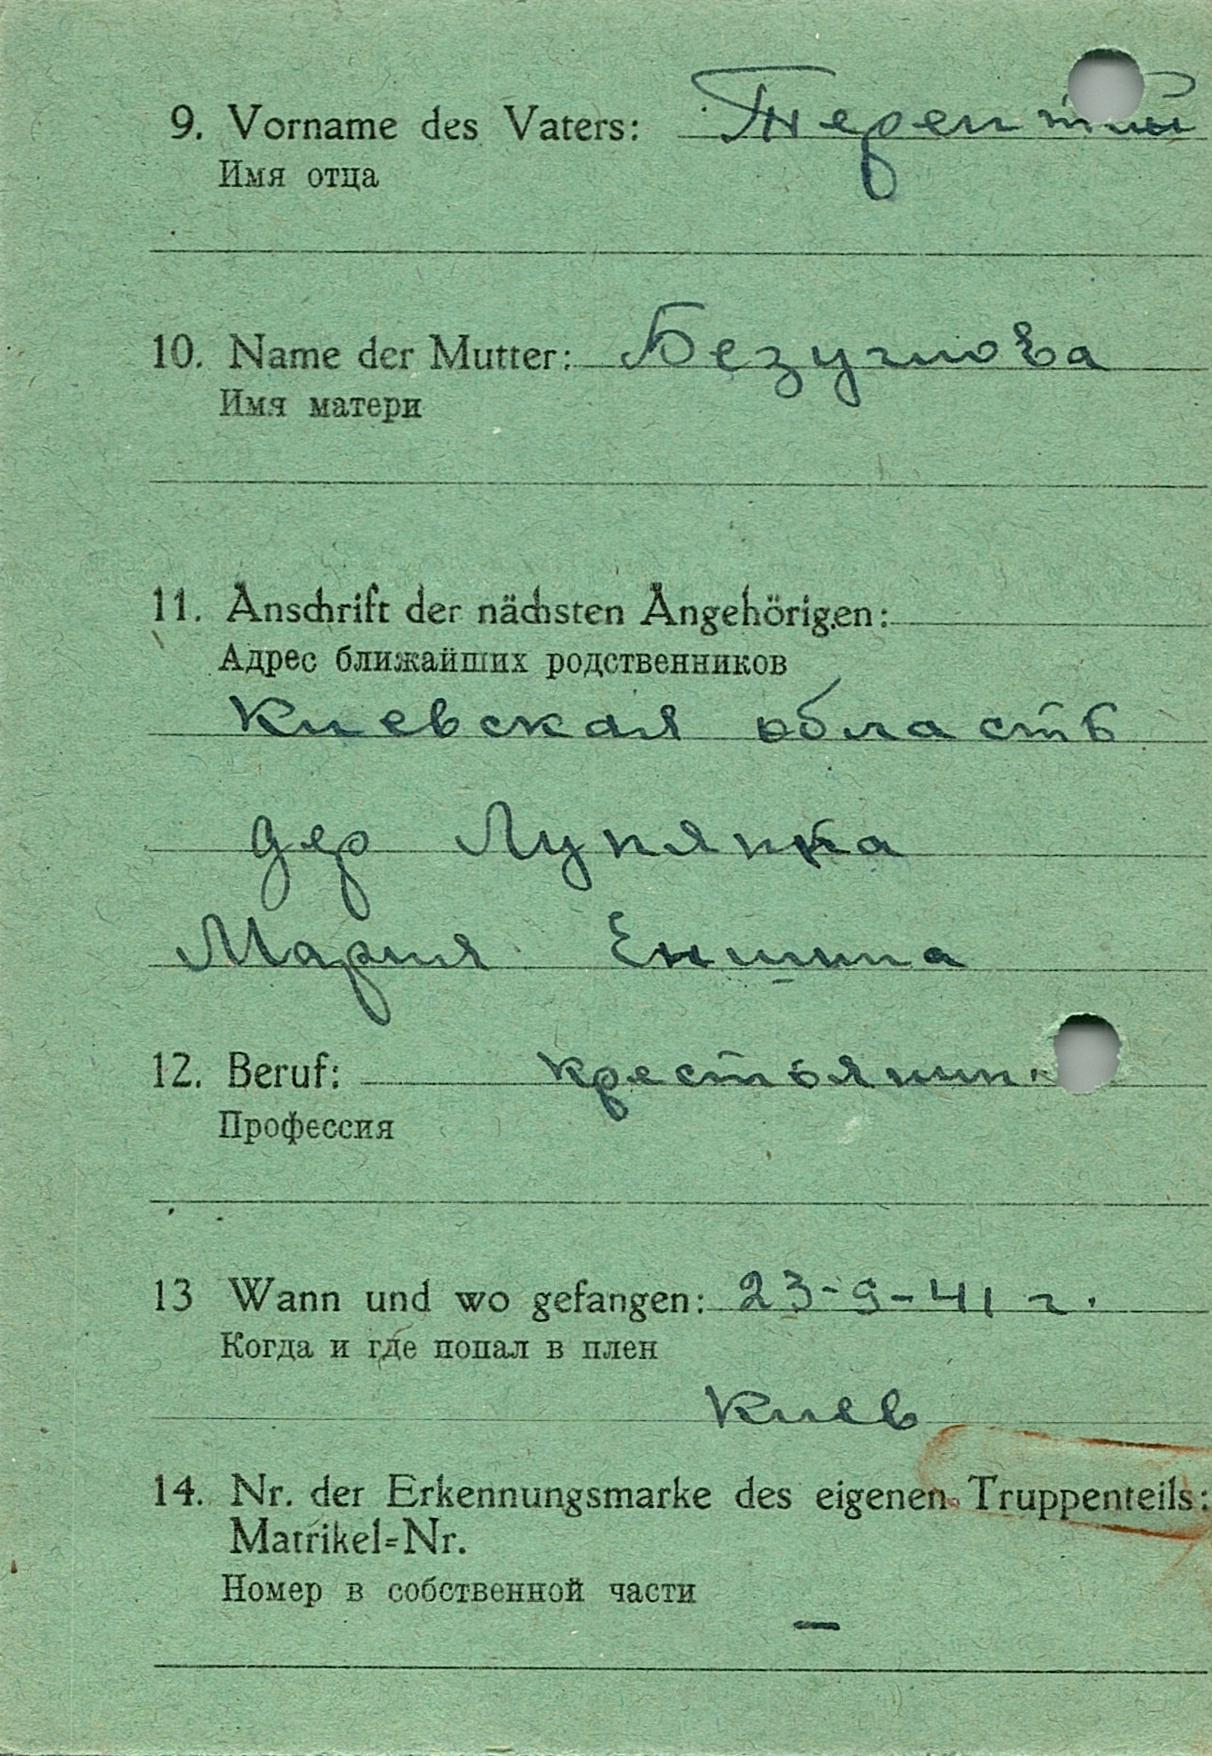 9. Vorname des Vaters: Терентий
Имя отца
10. Name der Mutter: Безуглова
Имя матери
11. Anschrift der nächsten Angehörigen:
Адрес ближайших родственников
Киевская область
дер Лупянка
Мария Еншина
12. Beruf: крестьянин
Профессия
13 Wann und wo gefangen: 23-9-41 г.
Когда и где попал в плен
Киев
14. Nr. der Erkennungsmarke des eigenen Truppenteils:
Matrikel=Nr.
Номер в собственной части
—